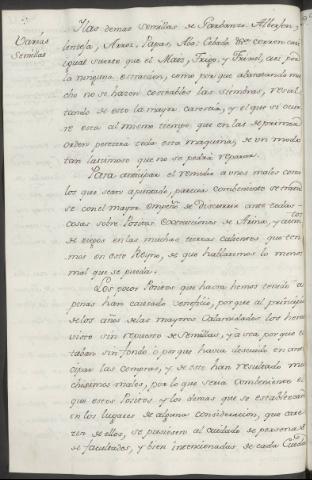 Varias
Semillas
Y las demas Semillas de Garbanza, Alberjon,
Lenteja, Arroz, Papas, Aba, Cebada &c corren casi
igual suerte que el Maiz, Trigo, y Frixol, asi por
la ninguna estracion, como por que abaratando mu
cho no se hacen costeables las siembras, resul
tando de esto la mayor carestia, y el que si ocur
re esta al mismo tiempo que en las de primera
orden perezca toda esta maquina, de un modo
tan lastimoso que no se podrá reparar.
Para anticipar el remedio á unos males como
los que dexo apuntado, parecia combeniente se trata
se con el mayor empeño de discurrir ante todas
cosas sobre Positos, Extracciones de Arina, y
de trigos en las muchas tierras calientes que tene
mos en este Reyno, de que hallarimos lo menos
mal que se pueda.
Los pocos Positos que hasta hemos tenido a
penas han causado beneficio, porque al principio
de los años de las mayores Calamidades los he
visto sin repuesto de Semillas, ya sea por que es
taban sin fondo, o porque havia descuido en anti
cipar las compras, y de este han resultado mu
chisimos males, por lo que seria combeniente el
que estos Positos, y los demas que se establezcan
en los lugares de alguna consideracion, que care
cen de ellos, se pusiesen al cuidado de personas
de facultades, y bien intencionadas, de cada Ciudad